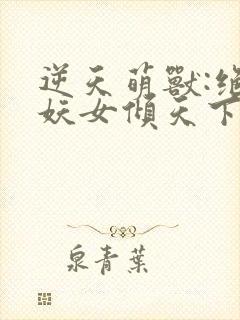 逆天萌獸:絕
妖女傾天下
泉青葉